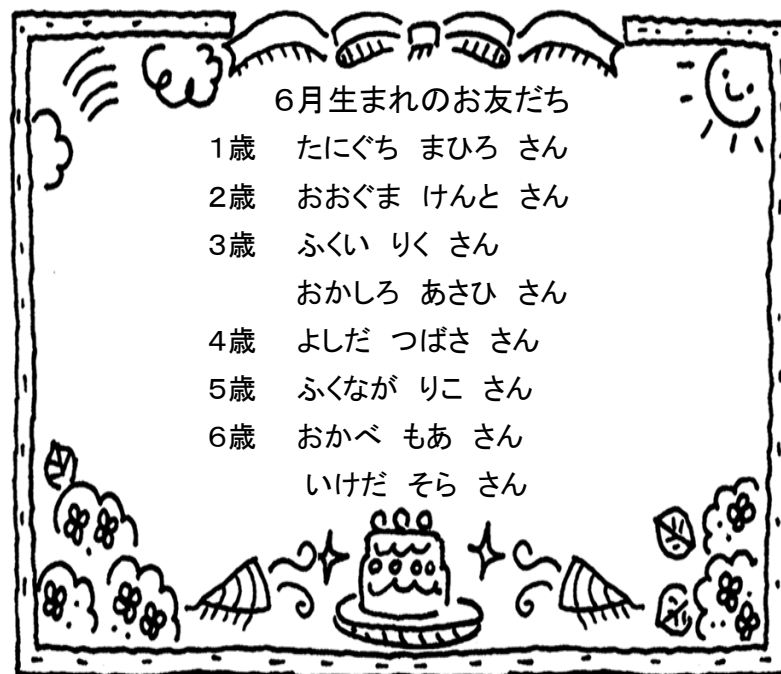 ６月生まれのお友だち
１歳　たにぐち　まひろ　さん
２歳　おおぐま　けんと　さん
３歳　ふくい　りく　さん
おかしろ　あさひ　さん
４歳　よしだ　つばさ　さん
５歳　ふくなが　りこ　さん
６歳　おかべ　もあ　さん
いけだ　そら　さん